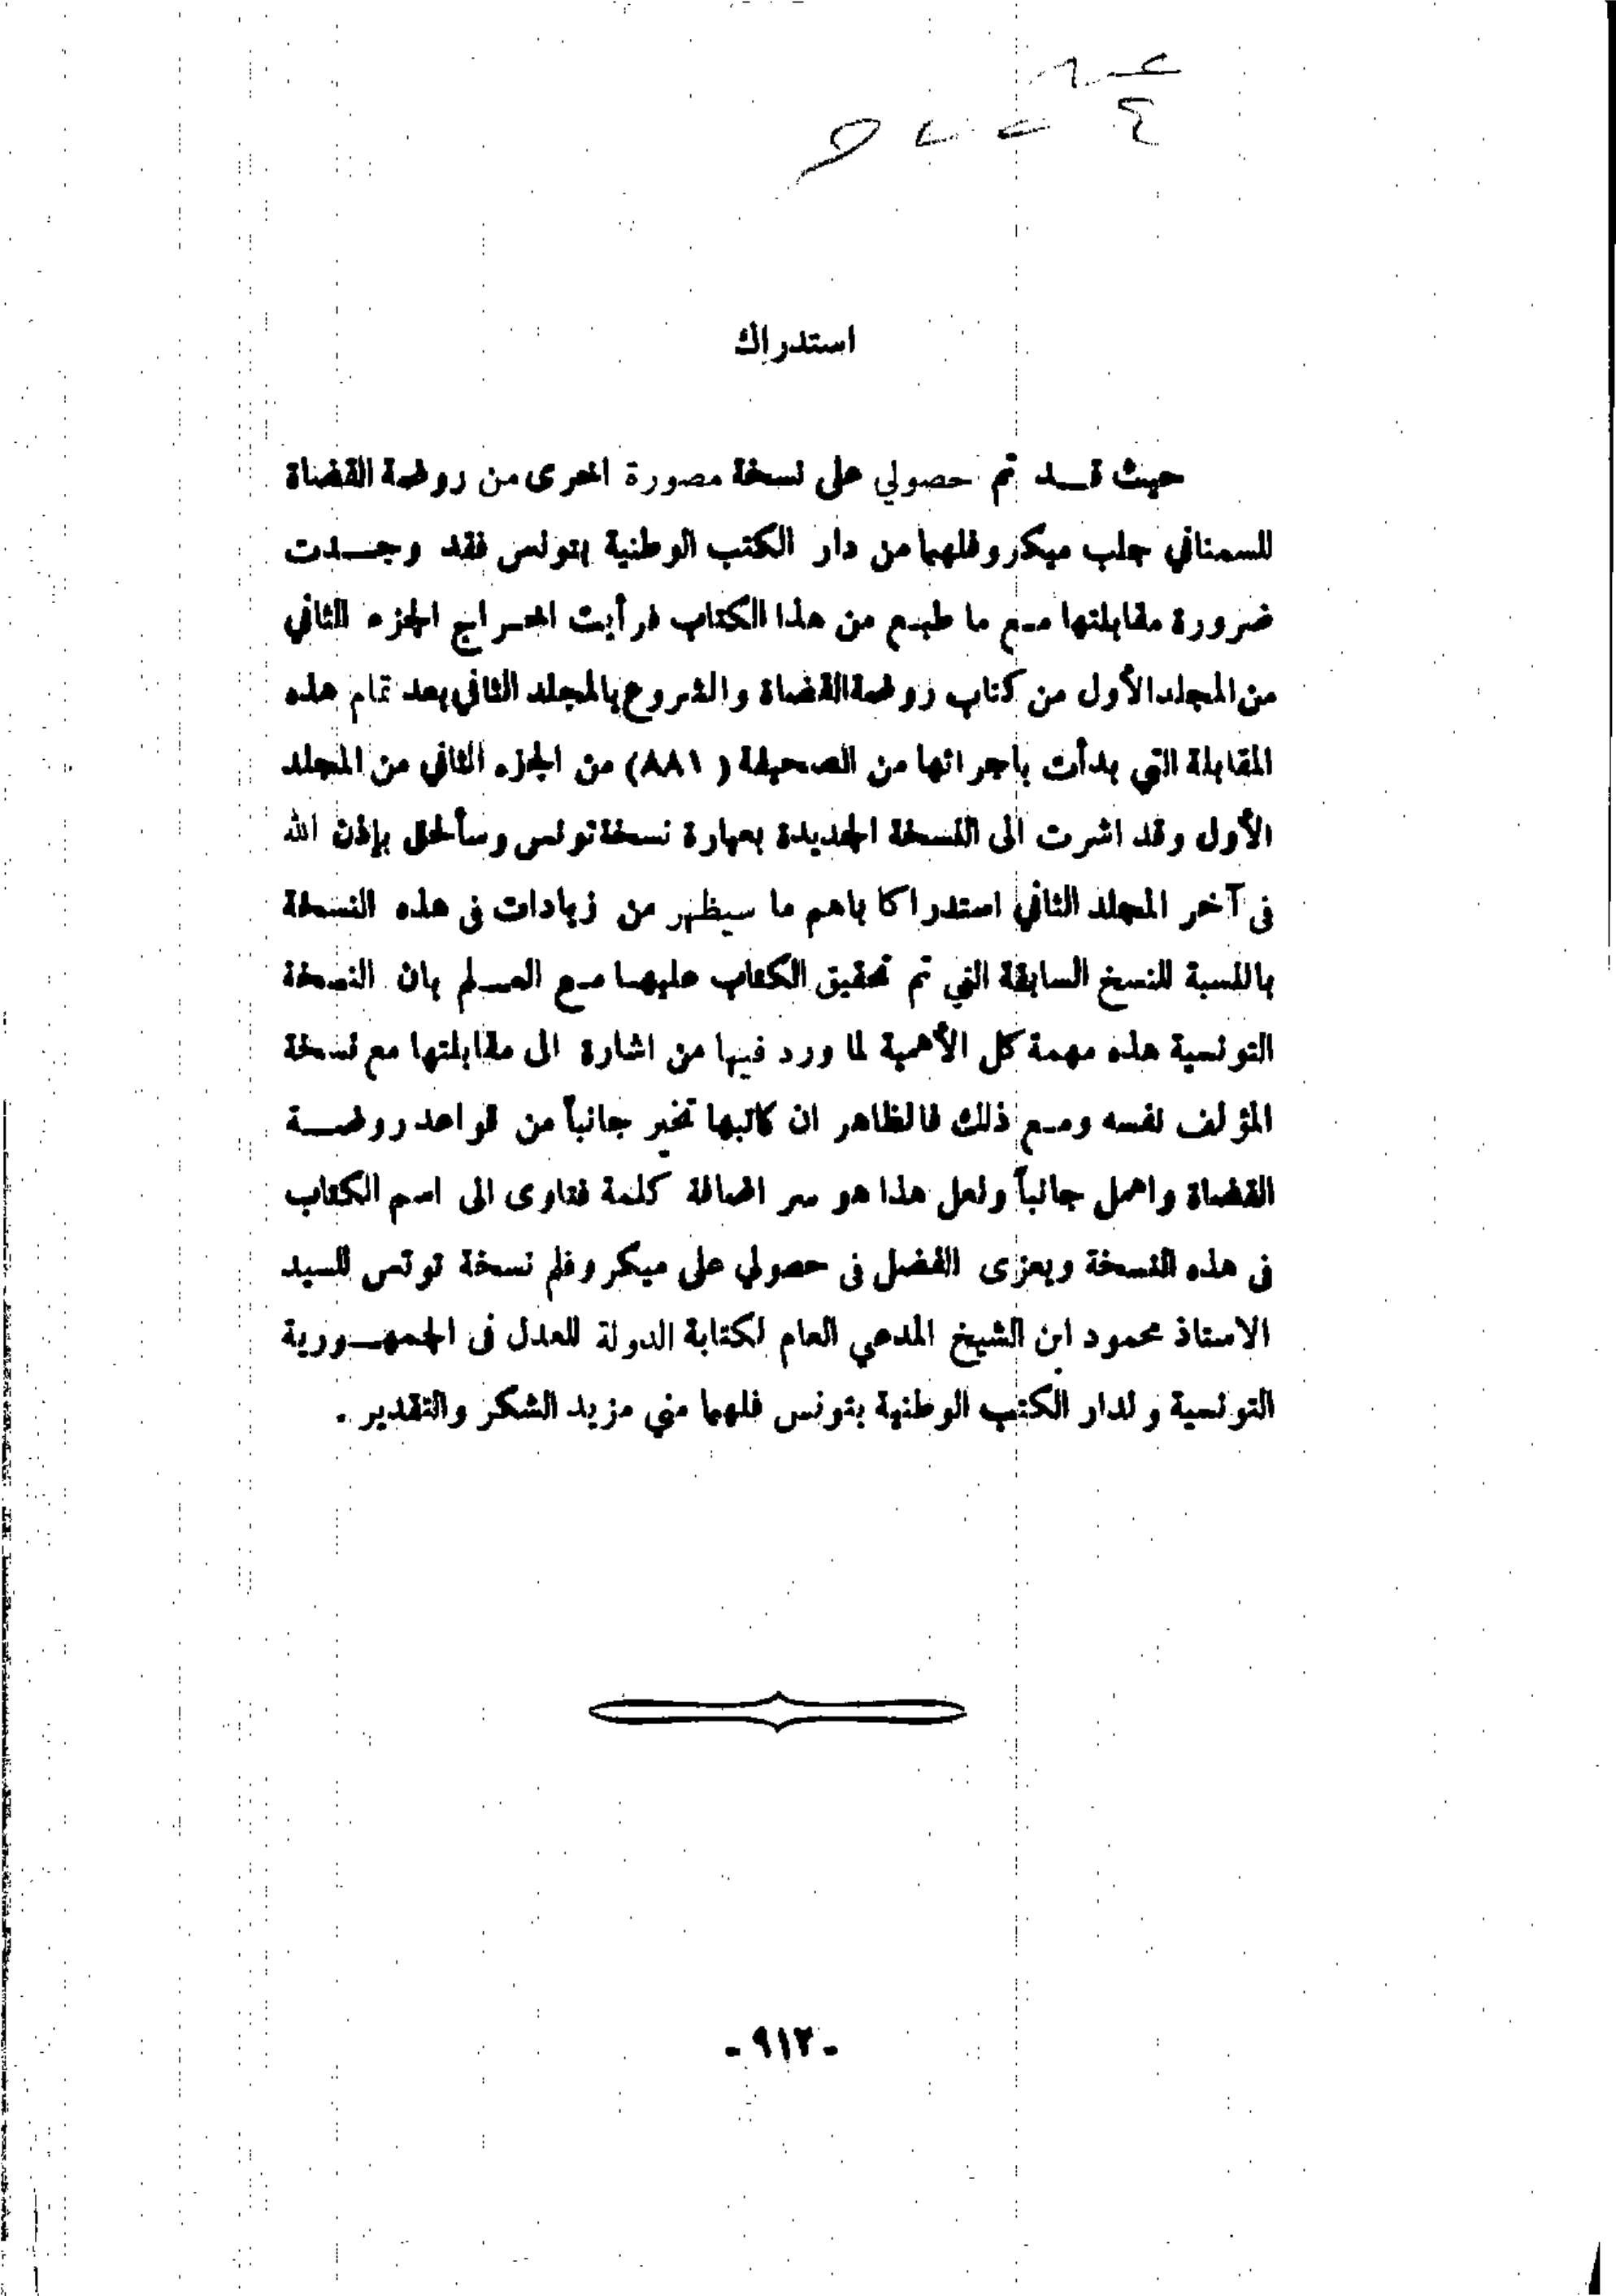 استدراك
حيث قـــد تم حصولي على نسخة مصورة اخرى من روضة القضاة
للسمناني جلب ميكروفلهما من دار الكتب الوطنية بتونس فقد وجـــدت
ضرورة مقابلتها مـع ما طبـع من هذا الكتاب فرأيت اخـراج الجزء الثاني
من المجلد الأول من كتاب روضة القضاة والشروع بالمجلد الثاني بعد تمام هذه
المقابلة التي بدأت باجرائها من الصحيفة (٨٨١) من الجزء الثاني من المجلد
الأول وقد اشرت الى النسخة الجديدة بعبارة نسخة تونس وسألحق بإذن الله
فى آخر المجلد الثاني استدراكا باهم ما سيظهر من زيادات فى هذه النسخة
بالنسبة للنسخ السابقة التي تم تحقيق الكتاب عليهـا مـع العـــلم بان النسخة
التونسية هذه مهمة كل الأهمية لما ورد فيها من اشارة الى مقابلتها مع نسخة
المؤلف نفسه ومـع ذلك فالظاهر ان كاتبها تخير جانباً من قواعد روضـــة
القضاة واهمل جانباً ولعل هذا هو سر اضافة كلمة فتاوى الى اسم الكتاب
فى هذه النسخة ويعزى الفضل فى حصولي على ميكروفلم نسخة تونس للسيد
الاستاذ محمود ابن الشيخ المدعي العام لكتابة الدولة للعدل فى الجمهـــورية
التونسية ولدار الكتب الوطنية بتونس فلهما مني مزيد الشكر والتقدير .
- ٩١٢ -